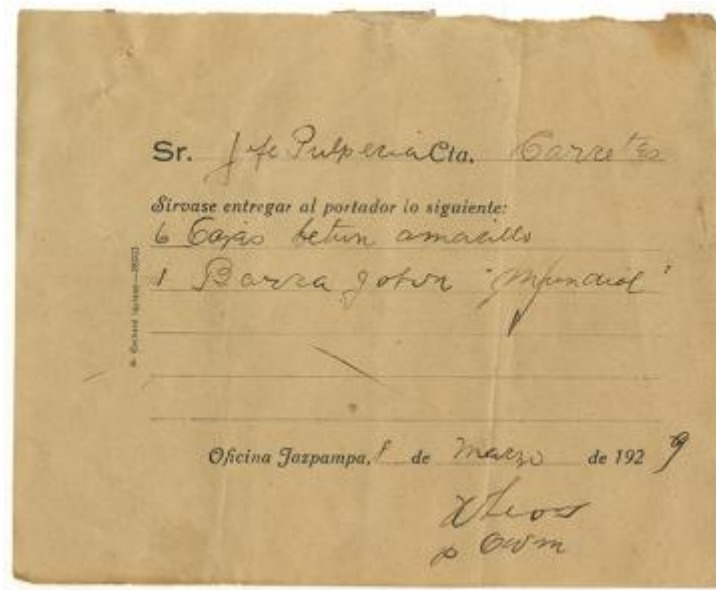 Sr. Jefe Pulperia Cta. Carretas
Sírvase entregar al portador lo siguiente:
6 Cajas betun amarillo
1 Barra jabon "Mundial"
Oficina Jazpampa, 8 de Marzo de 1929